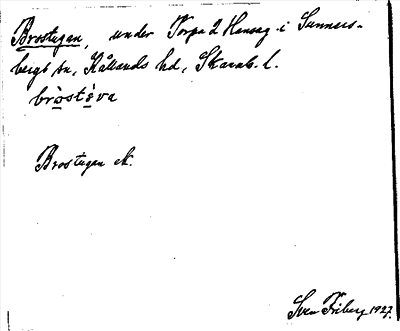 Brostugan, under Torpa 2 Hemseg. i Sunners-
bergs sn, Kållands hd, Skarab. l.
bròstè̱va
Brostugan A.
Sven Friberg 1927.